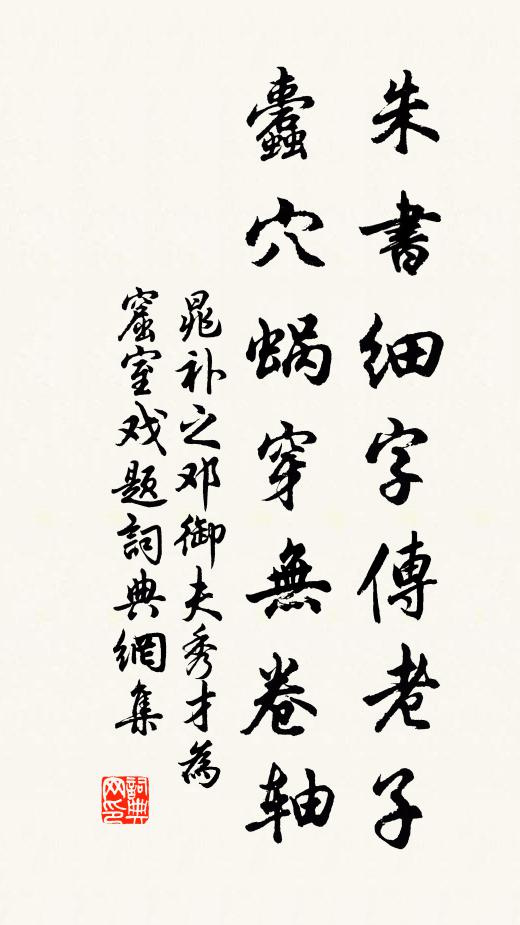 朱書細字傳老子
蠹穴蝸穿無卷軸
晁补之邓御夫秀才為
窟室戏题詞典網集
詞典
网印